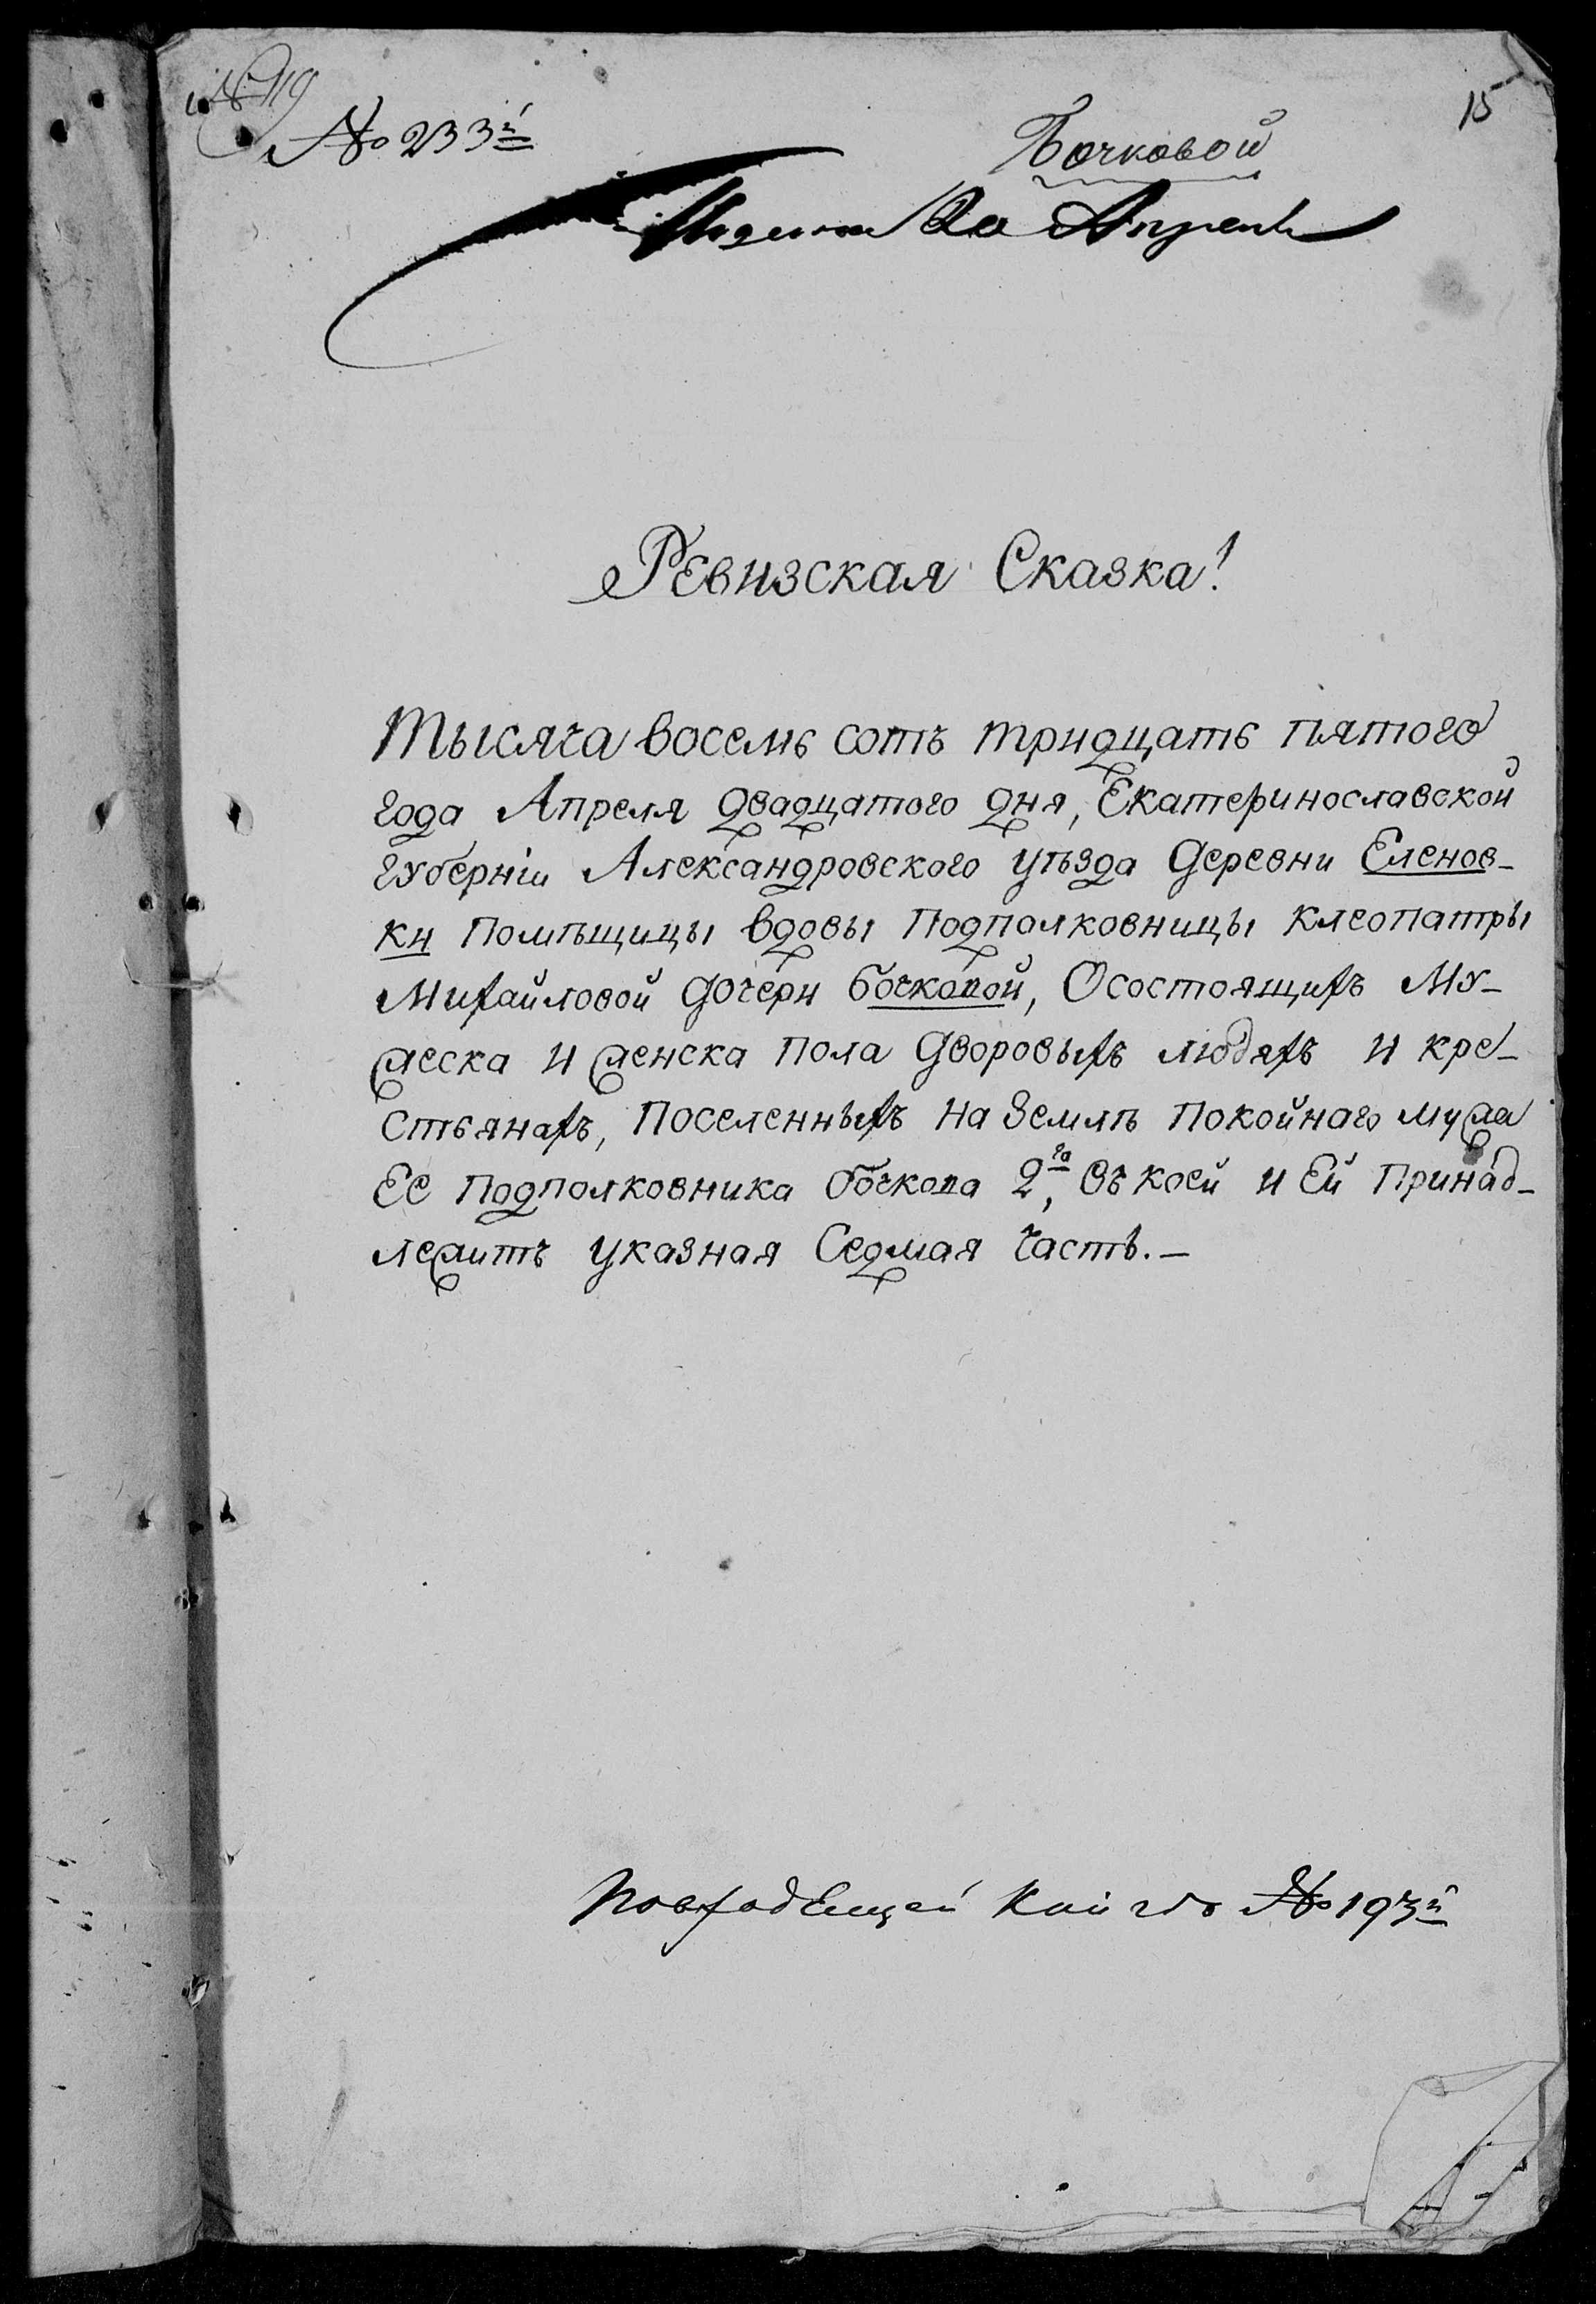 № 119
15
№ 233й
Бочковой
20 Апреля
Ревизская Сказка!
Тысяча восемь сотъ тридцать пятого
года Апреля двадцатого дня, Екатеринославской
губерніи Александровского уѣзда деревни Еленов-
ки помѣщицы вдовы подполковницы Клеопатры
Михайловой дочери Бочковой, О состоящихъ му-
жеска и женска пола дворовыхъ людяхъ и кре-
стьянахъ, поселенныхъ на землѣ покойнаго мужа
Ее подполковника Бочкова 2го, въ коей и Ей принад-
лежитъ указная седмая часть.—
По входящей книгѣ № 193й